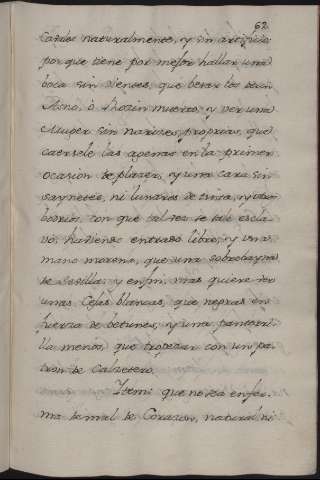 62
naturalmente, y sin artificio
porque tiene por mejor hallar una
boca sin dientes, que besar los de un
Asno, ò Rozin muerto, y ver una
Muger sin narizes proprias, que
caersele las agenas en la primer
ocasion de plazer, y una cara sin
saynetes, ni lunares de tinta, y
con que tal vez se vè escla
vo, haviendo entrado libre, y una
mano morena, que una
de Sevilla, y en fin, mas quiere ver
unas Cejas blancas, que negras en
fuerza de betunes, y una pantorri
lla menos, que tropezar con un pa
tron de Calzetero.
Item: que no sea enfer
ma de mal de Corazon, natural ni